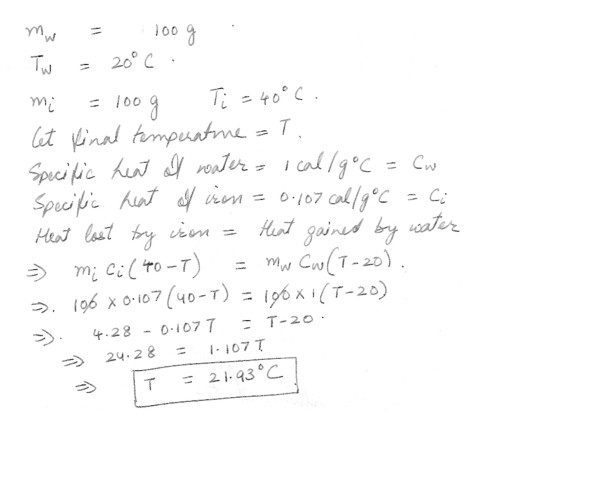 m_w = 100 g .
T_w = 20° C .
m_i = 100 g T_i = 40° C .
Let final temperature = T .
Specific heat of water = 1 cal/g°C = C_w
Specific heat of iron = 0.107 cal/g°C = C_i
Heat lost by iron = Heat gained by water
⇒ m_i C_i (40-T) = m_w C_w (T-20) .
⇒. 100 x 0.107 (40-T) = 100 x 1 (T-20)
⇒. 4.28 - 0.107 T = T-20 .
⇒ 24.28 = 1.107 T
⇒ T = 21.93° C